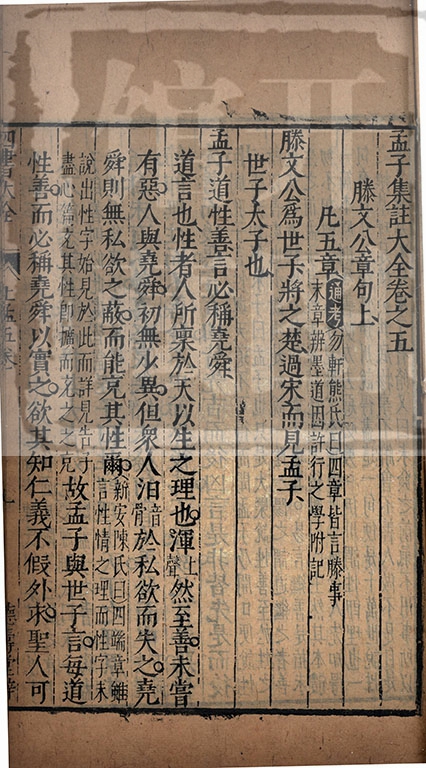 孟子集註大全卷之五
滕文公章句上
凡五章
通考
勿軒熊氏曰四章皆言滕事
末章辨墨道因許行之學附記
滕文公爲世子將之楚過宋而見孟子
世子太子也
孟子道性善言必稱堯舜
道言也性者人所稟於天以生之理也渾上聲然至善未嘗
有惡人與堯舜初無少異但衆人汨音骨於私欲而失之堯
舜則無私欲之蔽而能充其性爾
新安陳氏曰四端章雖
言性情之理而性字未
說出性字始見於此而詳見告子
盡心篇充其性即擴而充之之充
故孟子與世子言每道
性善而必稱堯舜以實之欲其知仁義不假外求聖人可
四書大全
上孟五卷
一